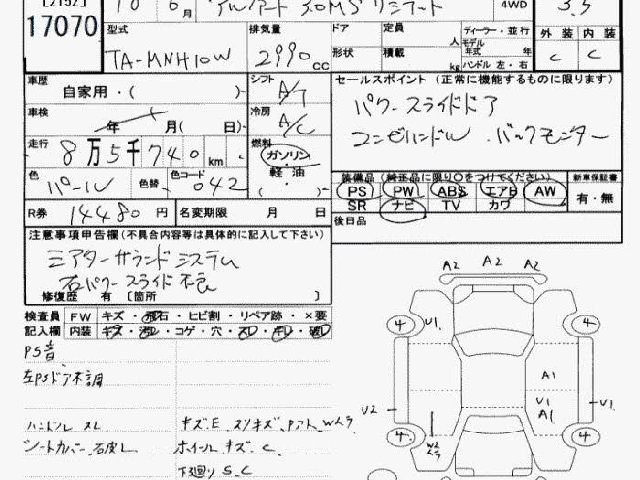 17070 10 6月 アルファード 3.0MS リミテッド 4WD 3.5
型式 排気量 ドア 定員 人 ディーラー・並行 外装 内装
TA-MNH10W 2990cc 形状 積載 kg モデル年式 年 ハンドル 左・右 C C
車歴 自家用・( )- シフト A/T セールスポイント(正常に機能するものに限ります)
車検 年 月( 日)- 冷房 A/C パワースライドドア
コンビハンドル バックモニター
走行 8万5千740km 燃料 ガソリン・軽油・( )-
色 パール 色替 色コード 042 装備品(純正品に限り○をつけてください) 新車保証書
PS PW ABS エアB AW 有・無
SR ナビ TV カワ
R券 14480円 名変期限 月 日 後日品
注意事項申告欄(不具合内容等は具体的に記入して下さい)
シアターサウンドシステム
右パワースライド不良
修復歴 有〔箇所 〕
検査員 FW キズ・飛石・ヒビ割・リペア跡・×要
記入欄 内装 キズ・汚レ・コゲ・穴・スレ・キレ・破レ
A2 A2 A2
4 U1 4
PS音
左PSドア不調
A1
U2 U1 A1 U1
ハンドルスレ キズE.スリキズ.
シートカバー.右皮し ホイールキズ.C
4 4
下廻りS.C